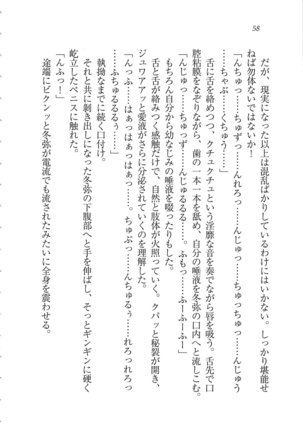 58
だが、現実になった以上は混乱ばかりしているわけにはいかない。しっかり堪能せ
ねば勿体ないではないか！
「んちゅっ……ちゅずっ……んれろっ……んじゅっ……ちゅっちゅっ……んじゅう
……ちゃぷ……ちゅうっ」
舌に舌を絡めつつ、クチュクチュという淫靡な音を奏でながら唇を吸う。舌先で口
腔粘膜をなぞりながら、歯の一本一本を舐め、自分の唾液を冬弥の口内へと流しこむ。
「んじゅっ……ちゅっず……んじゅるるる……。ふもっ……ふーふーふー」
もちろん自分から幼なじみの唾液を啜ったりもした。
舌と舌が絡みつく感触だけで、自然と肢体が火照っていく。クパッと秘裂が開き、
ジュワアアッと愛液がさらに分泌されていくのを理解した。
「んっふ……はぁっはぁっはぁっ……。ちゅぷっ……んちゅるぅ……れろっれろっ
……ふちゅるるるぅ……」
執拗なまでに続く口付け。
それと共に剥き出しになった冬弥の下腹部へと手を伸ばし、そっとギンギンに硬く
屹立したペニスに触れた。
「んふっ！」
途端にビクンッと冬弥が電流でも流されたみたいに全身を震わせる。